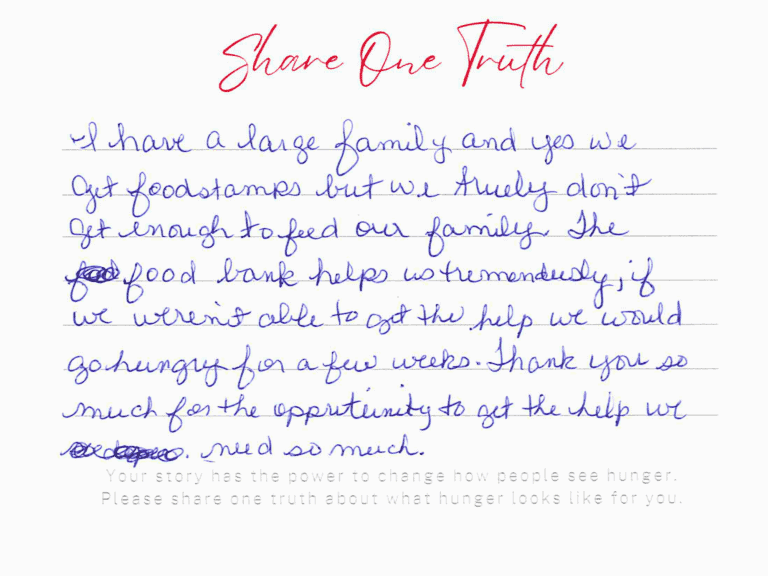 Share One Truth
I have a large family and yes we
get foodstamps but we truely don't
get enough to feed our family. The
food bank helps us tremendously, if
we weren't able to get the help we would
go hungry for a few weeks. Thank you so
much for the oppruteinity to get the help we
need so much.
Your story has the power to change how people see hunger.
Please share one truth about what hunger looks like for you.